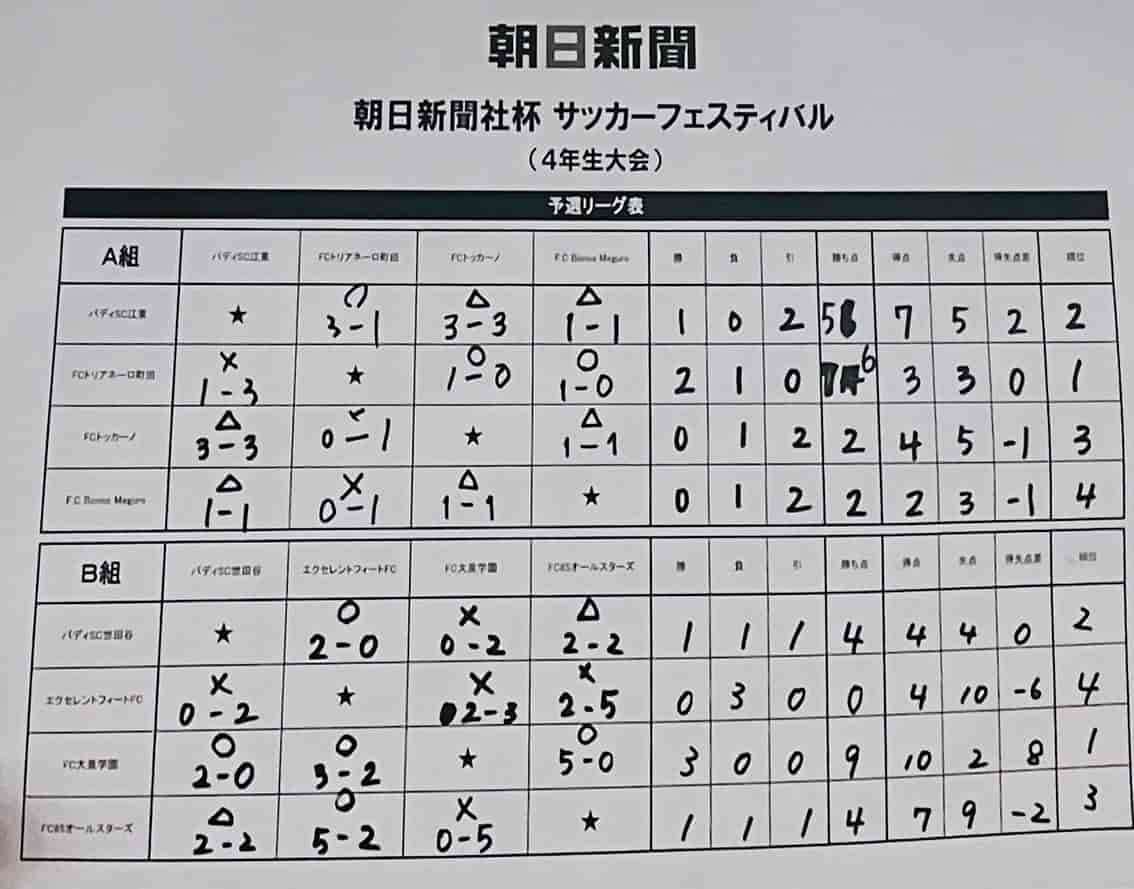 朝日新聞
朝日新聞社杯 サッカーフェスティバル
（4年生大会）
予選リーグ表
A組 バディSC江東 FCトリアネーロ町田 FCトッカーノ F.C Bonos Meguro 勝 負 引 勝ち点 得点 失点 得失点差 順位
バディSC江東 ★ ○ 3-1 △ 3-3 △ 1-1 1 0 2 5 7 5 2 2
FCトリアネーロ町田 × 1-3 ★ ○ 1-0 ○ 1-0 2 1 0 6 3 3 0 1
FCトッカーノ △ 3-3 × 0-1 ★ △ 1-1 0 1 2 2 4 5 -1 3
F.C Bonos Meguro △ 1-1 × 0-1 △ 1-1 ★ 0 1 2 2 2 3 -1 4
B組 バディSC世田谷 エクセレントフィートFC FC大泉学園 FC85オールスターズ 勝 負 引 勝ち点 得点 失点 得失点差 順位
バディSC世田谷 ★ ○ 2-0 × 0-2 △ 2-2 1 1 1 4 4 4 0 2
エクセレントフィートFC × 0-2 ★ × 2-3 × 2-5 0 3 0 0 4 10 -6 4
FC大泉学園 ○ 2-0 ○ 3-2 ★ ○ 5-0 3 0 0 9 10 2 8 1
FC85オールスターズ △ 2-2 ○ 5-2 × 0-5 ★ 1 1 1 4 7 9 -2 3